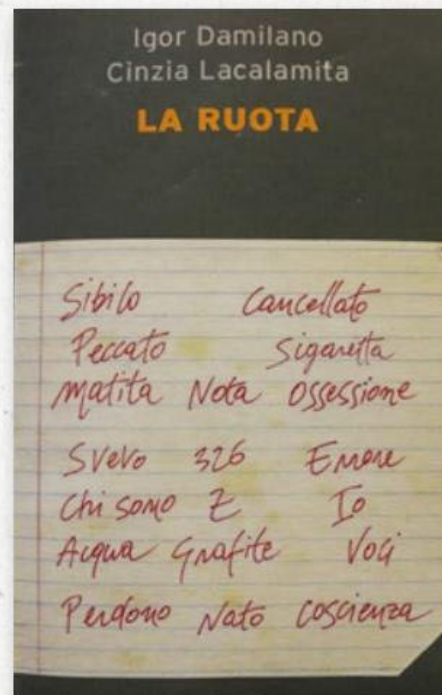 Igor Damilano
Cinzia Lacalamita
LA RUOTA
Sibilo Cancellato
Peccato Sigaretta
Matita Nota Ossessione
Svevo 326 Errore
Chi sono Z Io
Acqua Grafite Voci
Perdono Nato Coscienza